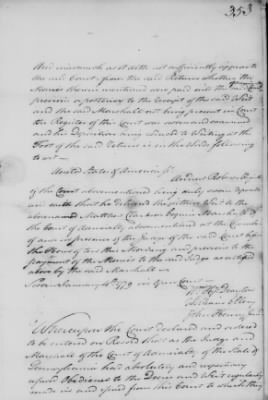 353
And inasmuch as it doth not sufficiently appear to
the said Court from the said Return whether the
Monies therein mentioned were paid unto the said Judge
previous or posteriory to the Receipt of the said Writ
and the said Marshall not being present in Court
the Register of this Court was sworn and examined
and his Deposition being reduced to Writing at the
Foot of the said return is in the Words following
to wit—
United States of America ss
Andrew Robeson Register
of the Court abovementioned being duly sworn deposeth
and saith that he delivered the within Writ to the
abovenamed Matthew Clarkson Esquire Marshall of the
Court of Admiralty abovementioned at the Chamber
of and in presence of the Judge of the said Court
the Hour of in the Morning and previous to the
payment of the Monies to the said Judge as alledged
above by the said Marshall—
Sworn January 4th 1779 in open Court—
Wm Hy Drayton
William Ellery
John Henry
Whereupon the Court declared and ordered
to be entered on Record that as the Judge and
Marshall of the Court of Admiralty of the State of
Pennsylvania had absolutely and respectively
refused Obedience to the Decree and Writ regularly
made in and issued from this Court to which they